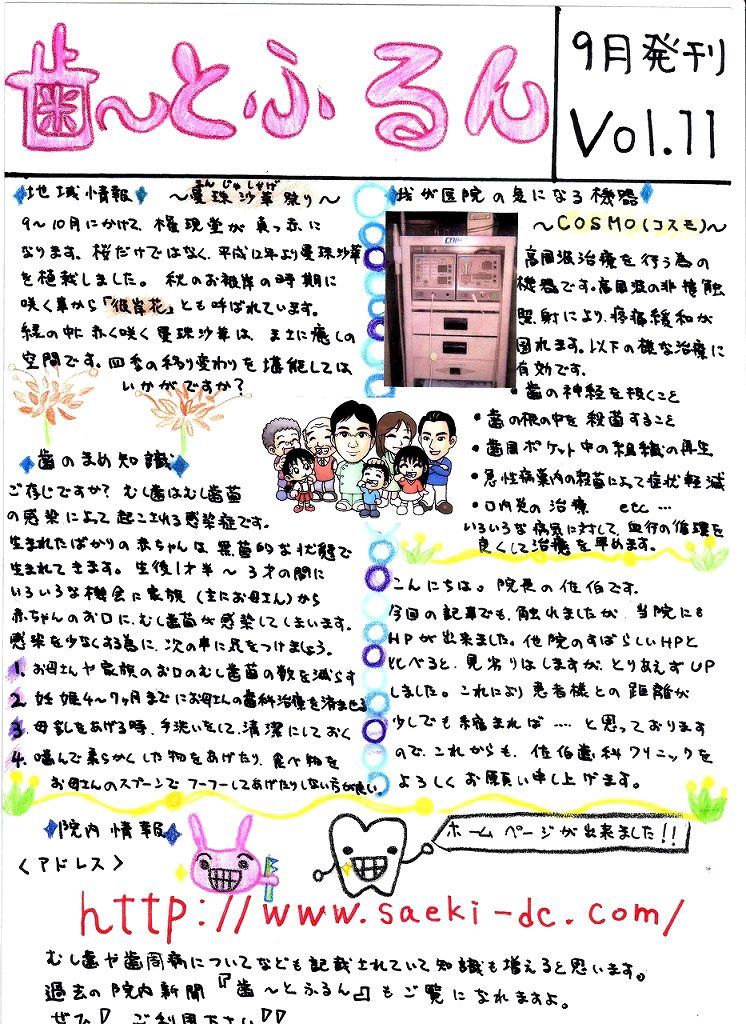 歯〜とふるん
9月発刊
Vol.11
地域情報 〜曼珠沙華祭り〜
まんじゅしゃげ
9〜10月にかけて、権現堂が真っ赤に
なります。桜だけではなく、平成12年より曼珠沙華
を植栽しました。秋のお彼岸の時期に
咲く事から「彼岸花」とも呼ばれています。
緑の中に赤く咲く曼珠沙華は、まさに癒しの
空間です。四季の移り変わりを堪能しては
いかがですか？
歯のまめ知識
ご存じですか？むし歯はむし歯菌
の感染によって起こされる感染症です。
生まれたばかりの赤ちゃんは無菌的な状態で
生まれてきます。生後1才半〜3才の間に
いろいろな機会に家族（主にお母さん）から
赤ちゃんのお口に、むし歯菌が感染してしまいます。
感染を少なくする為に、次の事に気をつけましょう。
1. お母さんや家族のお口のむし歯菌の数を減らす
2. 妊娠4〜7ヶ月までにお母さんの歯科治療を済ませる
3. 母乳をあげる時、手洗いをして、清潔にしておく
4. 噛んで柔らかくした物をあげたり、食べ物を
お母さんのスプーンでフーフーしてあげたりしない方が良い。
我が医院の気になる機器
〜COSMO（コスモ）〜
高周波治療を行う為の
機器です。高周波の非接触
照射により、疼痛緩和が
図れます。以下の様な治療に
有効です。
・歯の神経を抜くこと
・歯の根の中を殺菌すること
・歯周ポケット中の組織の再生
・急性病巣内の殺菌によって症状軽減
・口内炎の治療 etc…
いろいろな病気に対して、血行の循環を
良くして治療を早めます。
こんにちは。院長の佐伯です。
今回の記事でも、触れましたが、当院にも
HPが出来ました。他院のすばらしいHPと
比べると、見劣りはしますが、とりあえずUP
しました。これにより患者様との距離が
少しでも縮まれば‥‥と思っております
ので、これからも、佐伯歯科クリニックを
よろしくお願い申し上げます。
院内情報
ホームページが出来ました!!
〈アドレス〉
http://www.saeki-dc.com/
むし歯や歯周病についてなども記載されていて知識も増えると思います。
過去の院内新聞『歯〜とふるん』もご覧になれますよ。
ぜひ！ご利用下さい！！